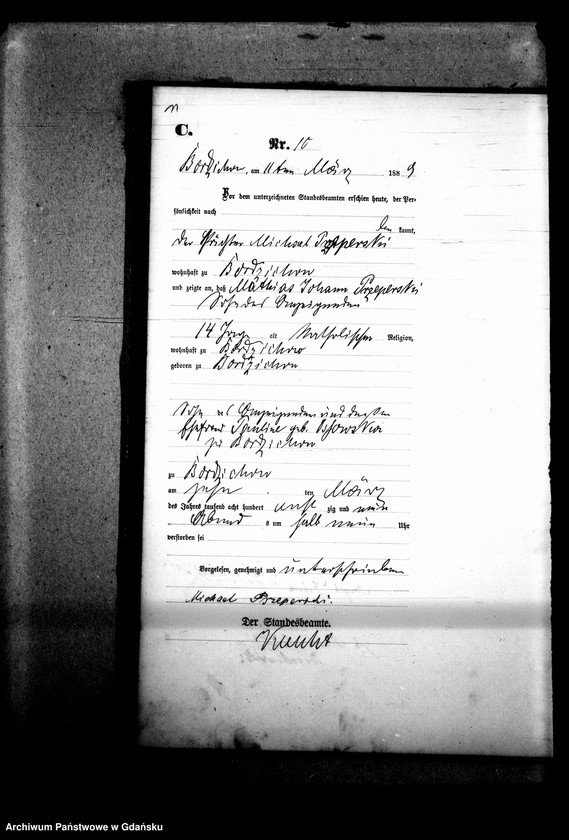 C.
Nr. 10
Bordzichow, am 11ten März 1889
Vor dem unterzeichneten Standesbeamten erschien heute, der Per-
sönlichkeit nach
kannt,
der Michael
wohnhaft zu Bordzichow
und zeigte an, daß Mathias Johann Przeperski
Sohn des Anzeigenden
14 alt katholischer Religion,
wohnhaft zu Bordzichow
geboren zu Bordzichow
Sohn des Anzeigenden und dessen
Ehefrau Pauline geb.
zu Bordzichow
zu Bordzichow
am zehn ten März
des Jahres tausend acht hundert acht zig und neun
Abends um halb neun Uhr
verstorben sei
Vorgelesen, genehmigt und unterschrieben
Michael
Der Standesbeamte.
Archiwum Państwowe w Gdańsku